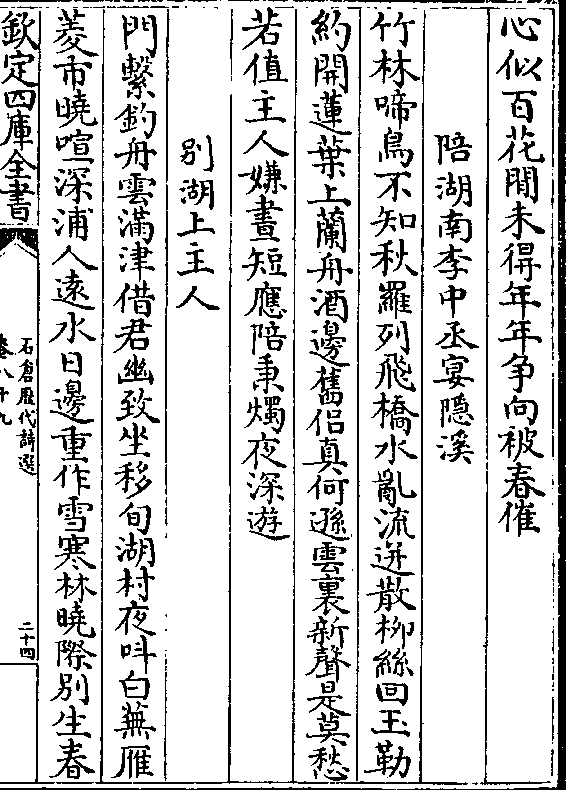 心似百花開未得年年争向被春催
陪湖南李中丞宴隠溪
竹林啼鳥不知秋羅列飛橋水亂流迸散柳絲回玉勒
約開蓮葉上蘭舟酒邊舊侣真何遜雲裏新聲是莫愁
若值主人嫌晝短應陪秉燭夜深遊
别湖上主人
門繫釣舟雲滿津借君幽致坐移旬湖村夜叫白蕪雁
菱市曉喧深浦人遠水日邊重作雪寒林曉際别生春
欽定四庫全書
石倉歴代詩選
卷八十九
二十四